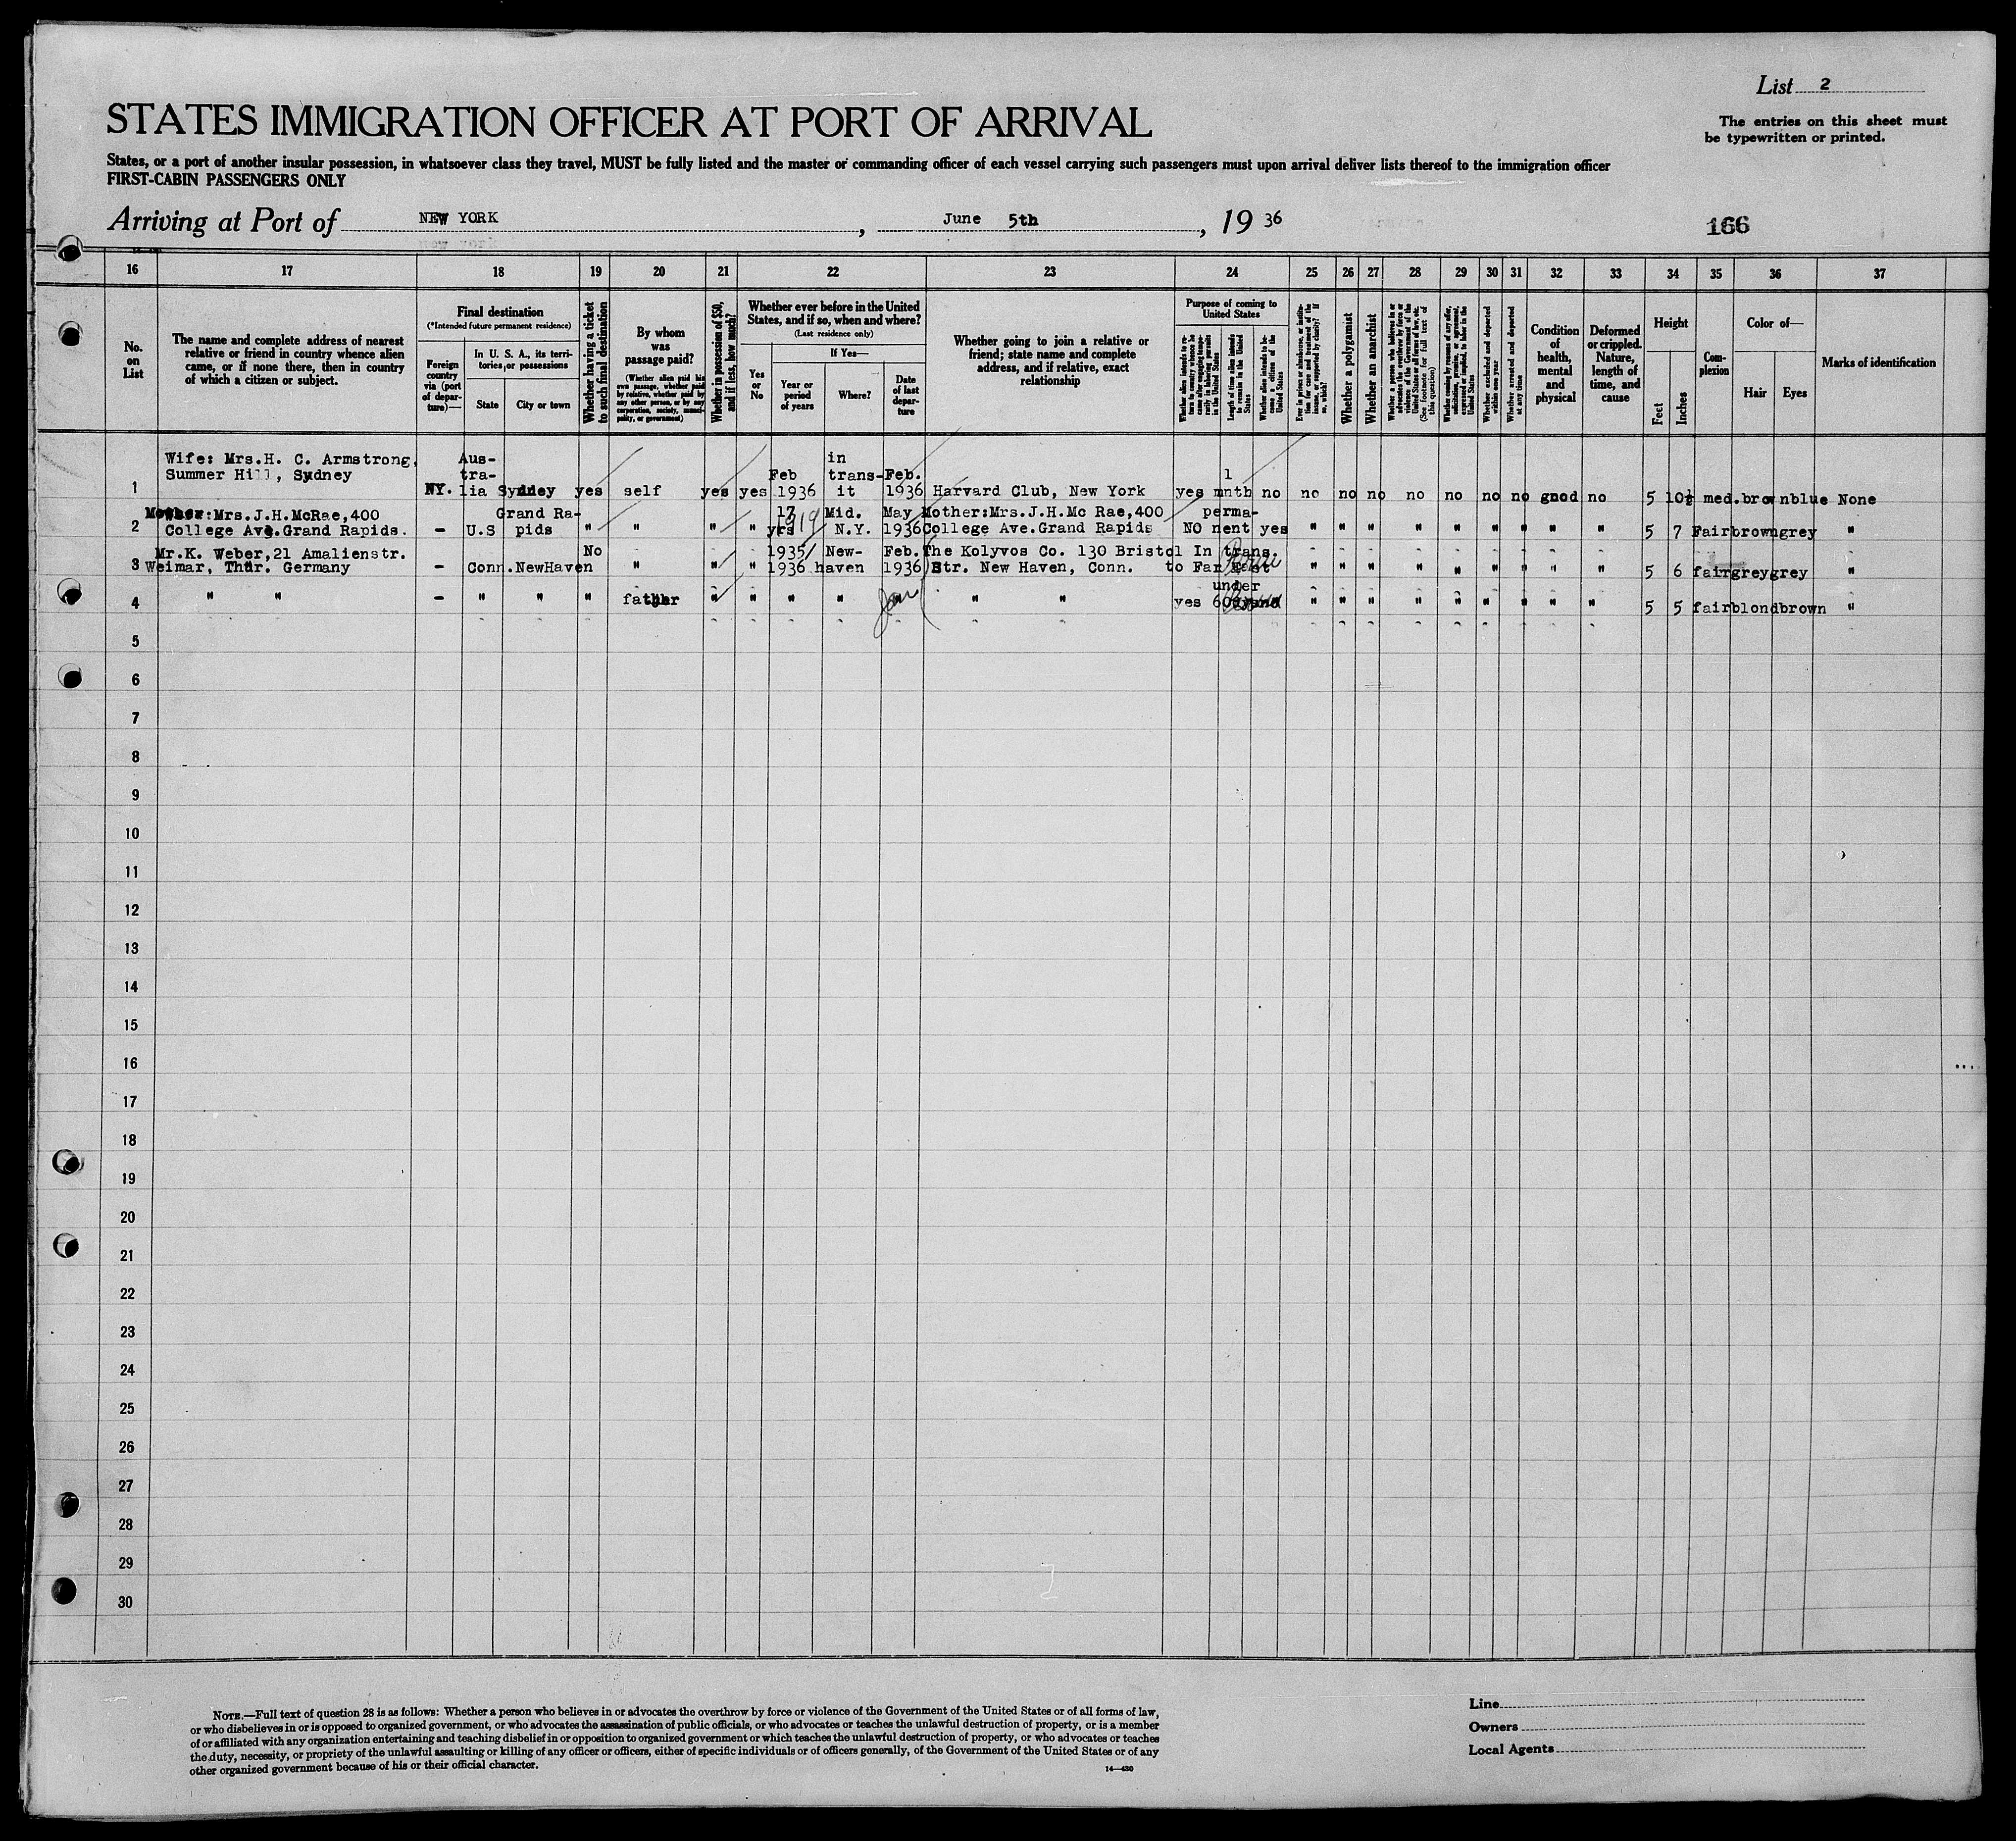 List 2
STATES IMMIGRATION OFFICER AT PORT OF ARRIVAL
The entries on this sheet must
be typewritten or printed.
States, or a port of another insular possession, in whatsoever class they travel, MUST be fully listed and the master or commanding officer of each vessel carrying such passengers must upon arrival deliver lists thereof to the immigration officer
FIRST-CABIN PASSENGERS ONLY
Arriving at Port of NEW YORK, June 5th, 1936
166
16 17 18 19 20 21 22 23 24 25 26 27 28 29 30 31 32 33 34 35 36 37
No. on List
The name and complete address of nearest
relative or friend in country whence alien
came, or if none there, then in country
of which a citizen or subject.
Final destination
(*Intended future permanent residence)
Foreign country via (port of departure)—
In U. S. A., its territories, or possessions
State
City or town
Whether having a ticket to such final destination
By whom was passage paid?
(Whether alien paid his own passage, whether paid by relative, whether paid by any other person, or by any corporation, society, municipality, or government)
Whether in possession of $50, and if less, how much?
Whether ever before in the United States, and if so, when and where?
(Last residence only)
Yes or No
If Yes—
Year or period of years
Where?
Date of last departure
Whether going to join a relative or
friend; state name and complete
address, and if relative, exact
relationship
Purpose of coming to United States
Length of time alien intends to remain in the United States
Whether alien intends to become a citizen of the United States
Whether a polygamist
Whether an anarchist
(See footnote for full text of this question)
Whether excluded and deported within one year
Whether arrested and deported at any time
Condition of health, mental and physical
Deformed or crippled. Nature, length of time, and cause
Height
Feet
Inches
Complexion
Color of—
Hair
Eyes
Marks of identification
1 Wife: Mrs.H. C. Armstrong, Summer Hill, Sydney NY. Aus-tra-lia Sydney yes self yes yes Feb 1936 in trans-it Feb. 1936 Harvard Club, New York yes 1 mnth no no no no no no no no good no 5 10½ med. brown blue None
2 Mother:Mrs.J.H.McRae,400 College Ave.Grand Rapids. - U.S Grand Ra-pids " " " " 17 yrs 1919 Mid. N.Y. May 1936 Mother:Mrs.J.H.Mc Rae,400 College Ave.Grand Rapids NO perma-nent yes " " " " " " " " " 5 7 Fair brown grey "
3 Mr.K. Weber,21 Amalienstr. Weimar, Thür. Germany - Conn. NewHaven No " " " 1935/1936 New-haven Feb. 1936 The Kolyvos Co. 130 Bristol Str. New Haven, Conn. In trans. to Far East " " " " " " " " " 5 6 fair grey grey "
4 " " - " " " father " " " " Jan " " yes under 60 " " " " " " " " " 5 5 fair blond brown "
5
6
7
8
9
10
11
12
13
14
15
16
17
18
19
20
21
22
23
24
25
26
27
28
29
30
NOTE.—Full text of question 28 is as follows: Whether a person who believes in or advocates the overthrow by force or violence of the Government of the United States or of all forms of law,
or who disbelieves in or is opposed to organized government, or who advocates the assassination of public officials, or who advocates or teaches the unlawful destruction of property, or is a member
of or affiliated with any organization entertaining and teaching disbelief in or opposition to organized government or which teaches the unlawful destruction of property, or who advocates or teaches
the duty, necessity, or propriety of the unlawful assaulting or killing of any officer or officers, either of specific individuals or of officers generally, of the Government of the United States or of any
other organized government because of his or their official character.
14—430
Line
Owners
Local Agents